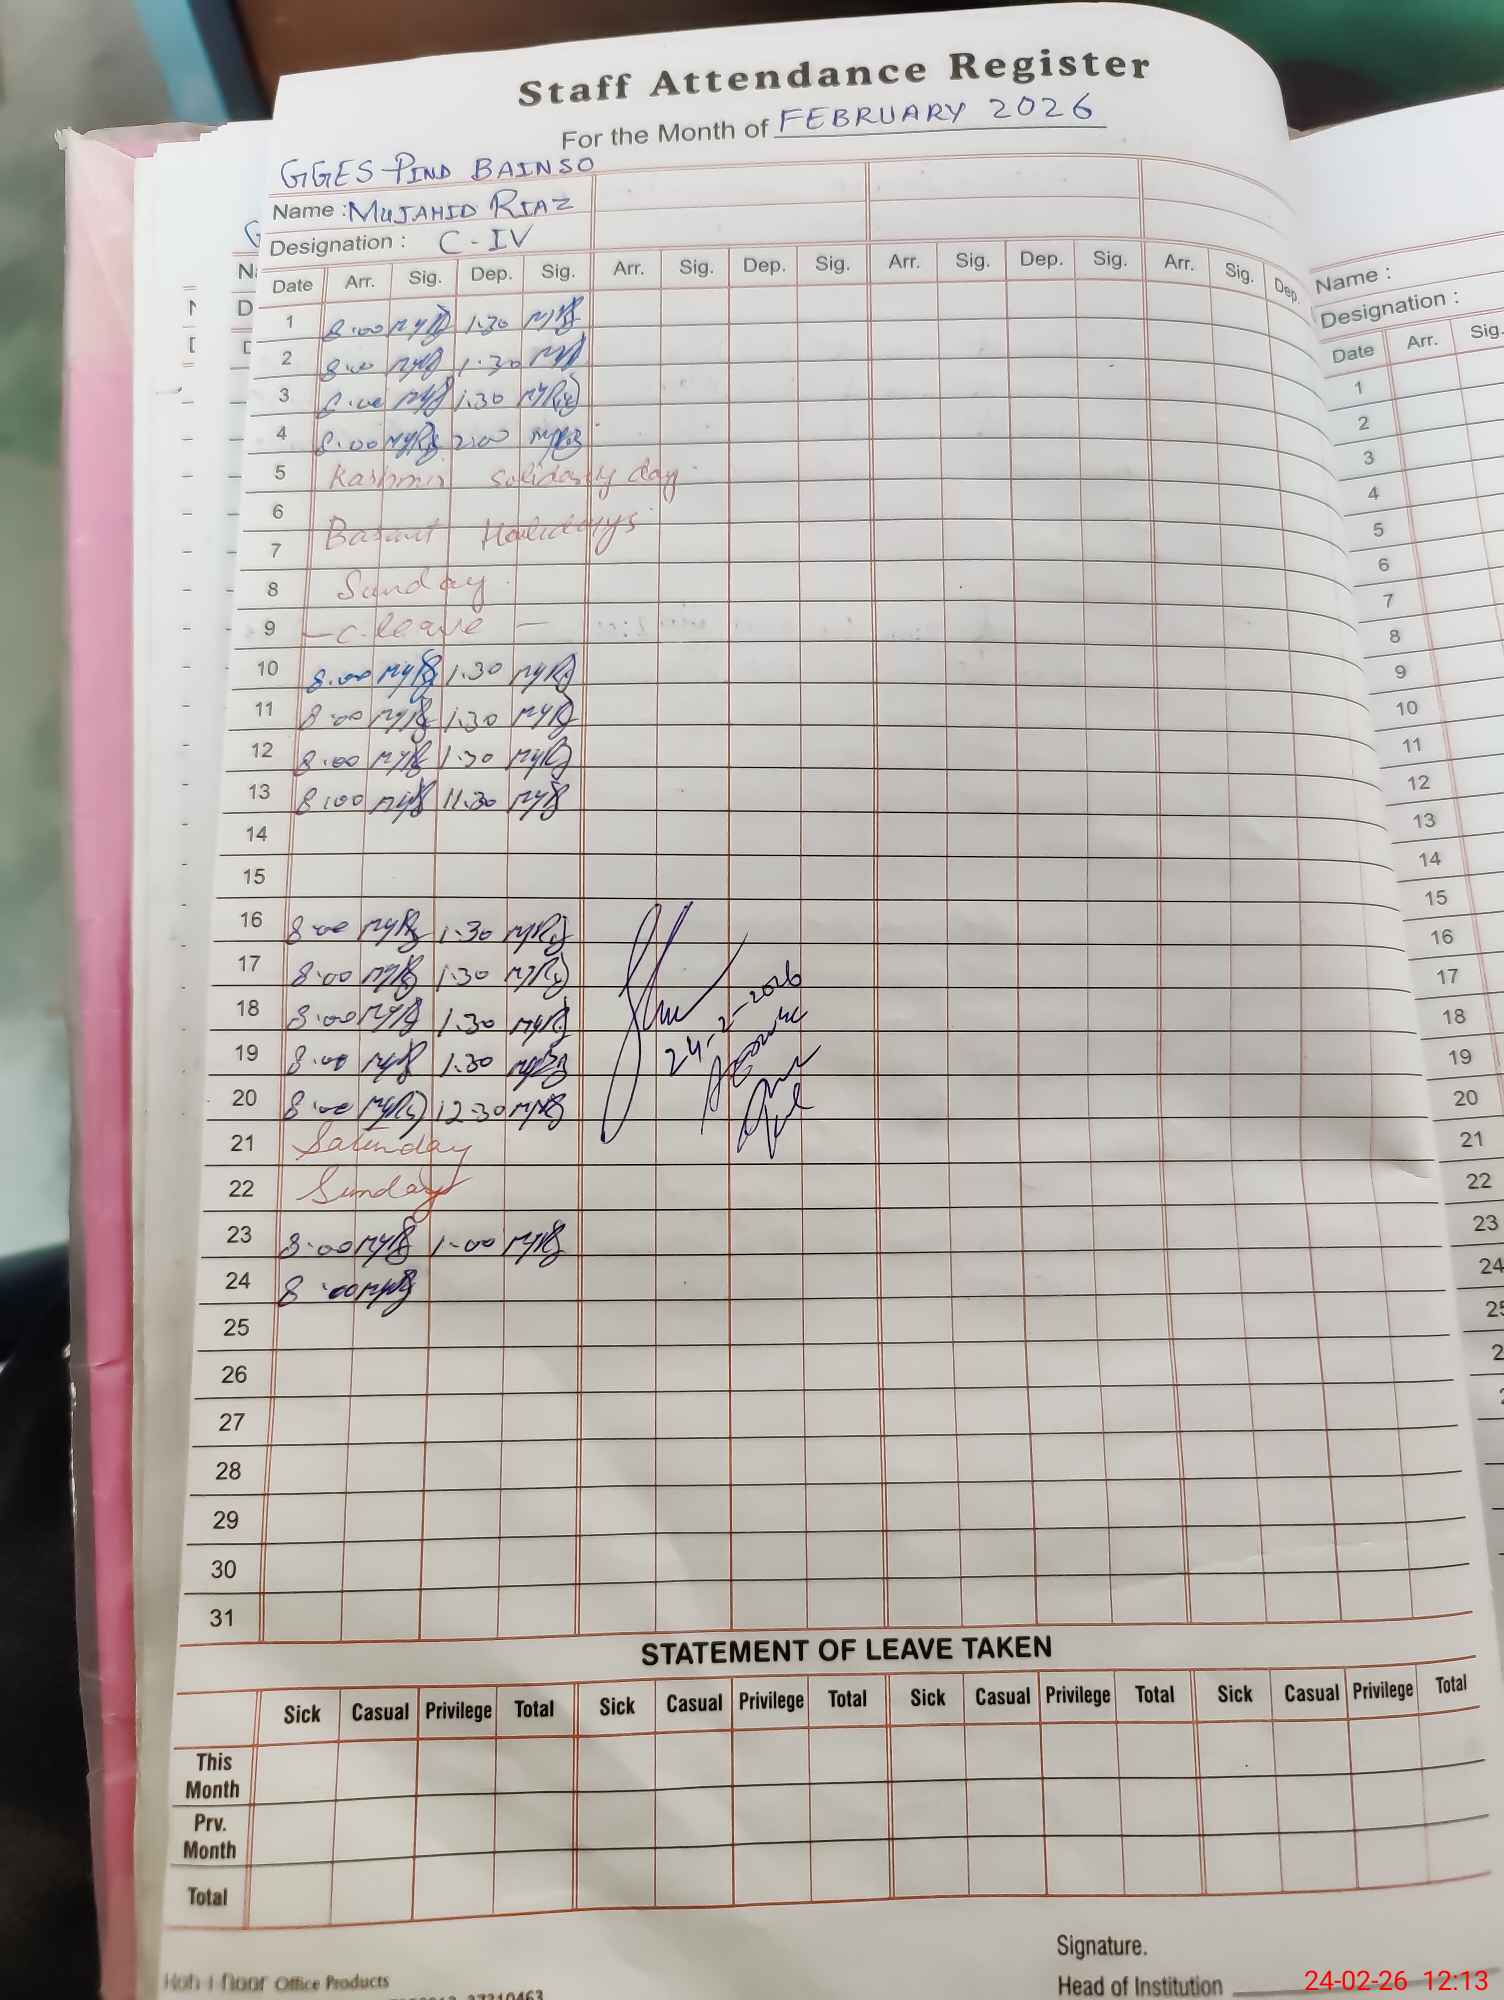 Staff Attendance Register
For the Month of FEBRUARY 2026
GGES PIND BAINSO
Name : MUJAHID RIAZ
Designation : C-IV
Date Arr. Sig. Dep. Sig. Arr. Sig. Dep. Sig. Arr. Sig. Dep. Sig. Arr. Sig. Dep.
1 8:00 1.30
2 8:00 1.30
3 8:00 1.30
4 8:00 2:00
5 Kashmir Solidarity day
6
Basant Holidays
7
8 Sunday
9 - C. leave -
10 8:00 1.30
11 8:00 1.30
12 8:00 1.30
13 8:00 11.30
14
15
16 8:00 1.30
17 8:00 1.30
18 8:00 1.30
19 8:00 1.30
20 8:00 12.30
24-2-2026
21 Saturday
22 Sunday
23 8:00 1:00
24 8:00
25
26
27
28
29
30
31
STATEMENT OF LEAVE TAKEN
Sick Casual Privilege Total Sick Casual Privilege Total Sick Casual Privilege Total Sick Casual Privilege Total
This Month
Prv. Month
Total
Signature.
Head of Institution
Office Products
24-02-26 12:13
Name :
Designation :
Date Arr. Sig.
1
2
3
4
5
6
7
8
9
10
11
12
13
14
15
16
17
18
19
20
21
22
23
24